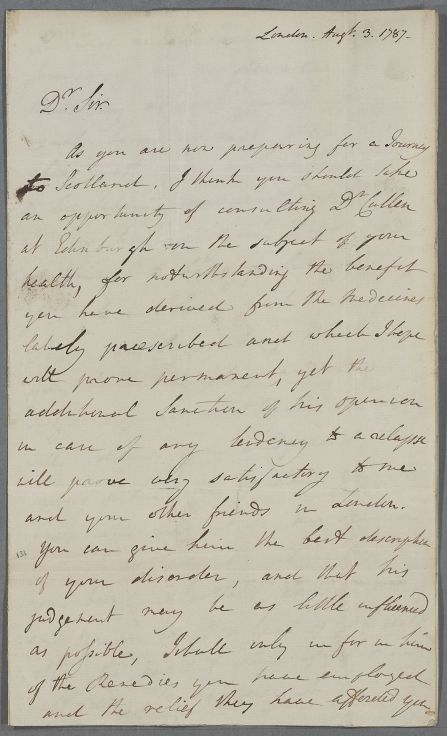 London. Augt. 3. 1787-
Dr. Sir.
As you are now preparing for a Journey
to Scotland, I think you should take
an opportunity of consulting Dr Cullen
at Edinburgh on the subject of your
health, for notwithstanding the benefit
you have derived from the Medicines
lately prescribed and which I hope
will prove permanent, yet the
additional Sanction of his opinion
in case of any tendency to a relapse
will prove very satisfactory to me
and your other friends in London.
You can give him the best description
134
of your disorder, and that his
judgement may be as little influenced
as possible, I shall only inform him
of the Remedies you have employed
and the relief they have afforded you